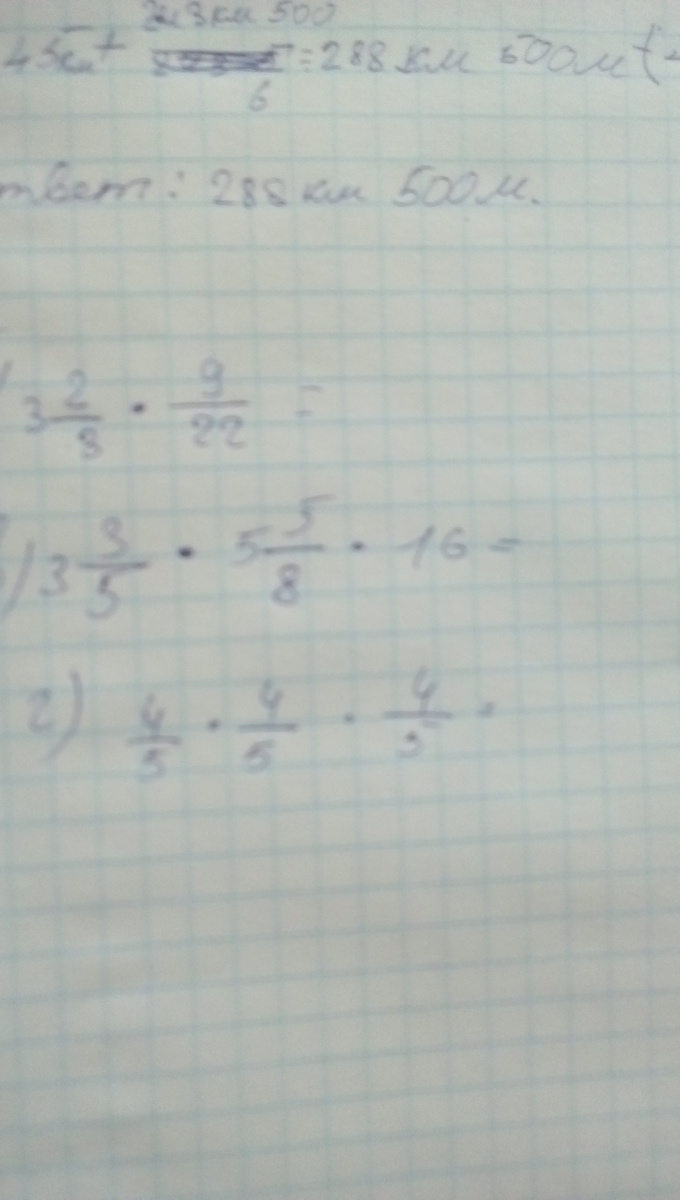 45км + 243км 500 / 6 = 288 км 500м (
твет: 288 км 500м.
) 3 2/3 · 9/22 =
) 3 3/5 · 5 5/8 · 16 =
г) 4/5 · 4/5 · 4/5 =